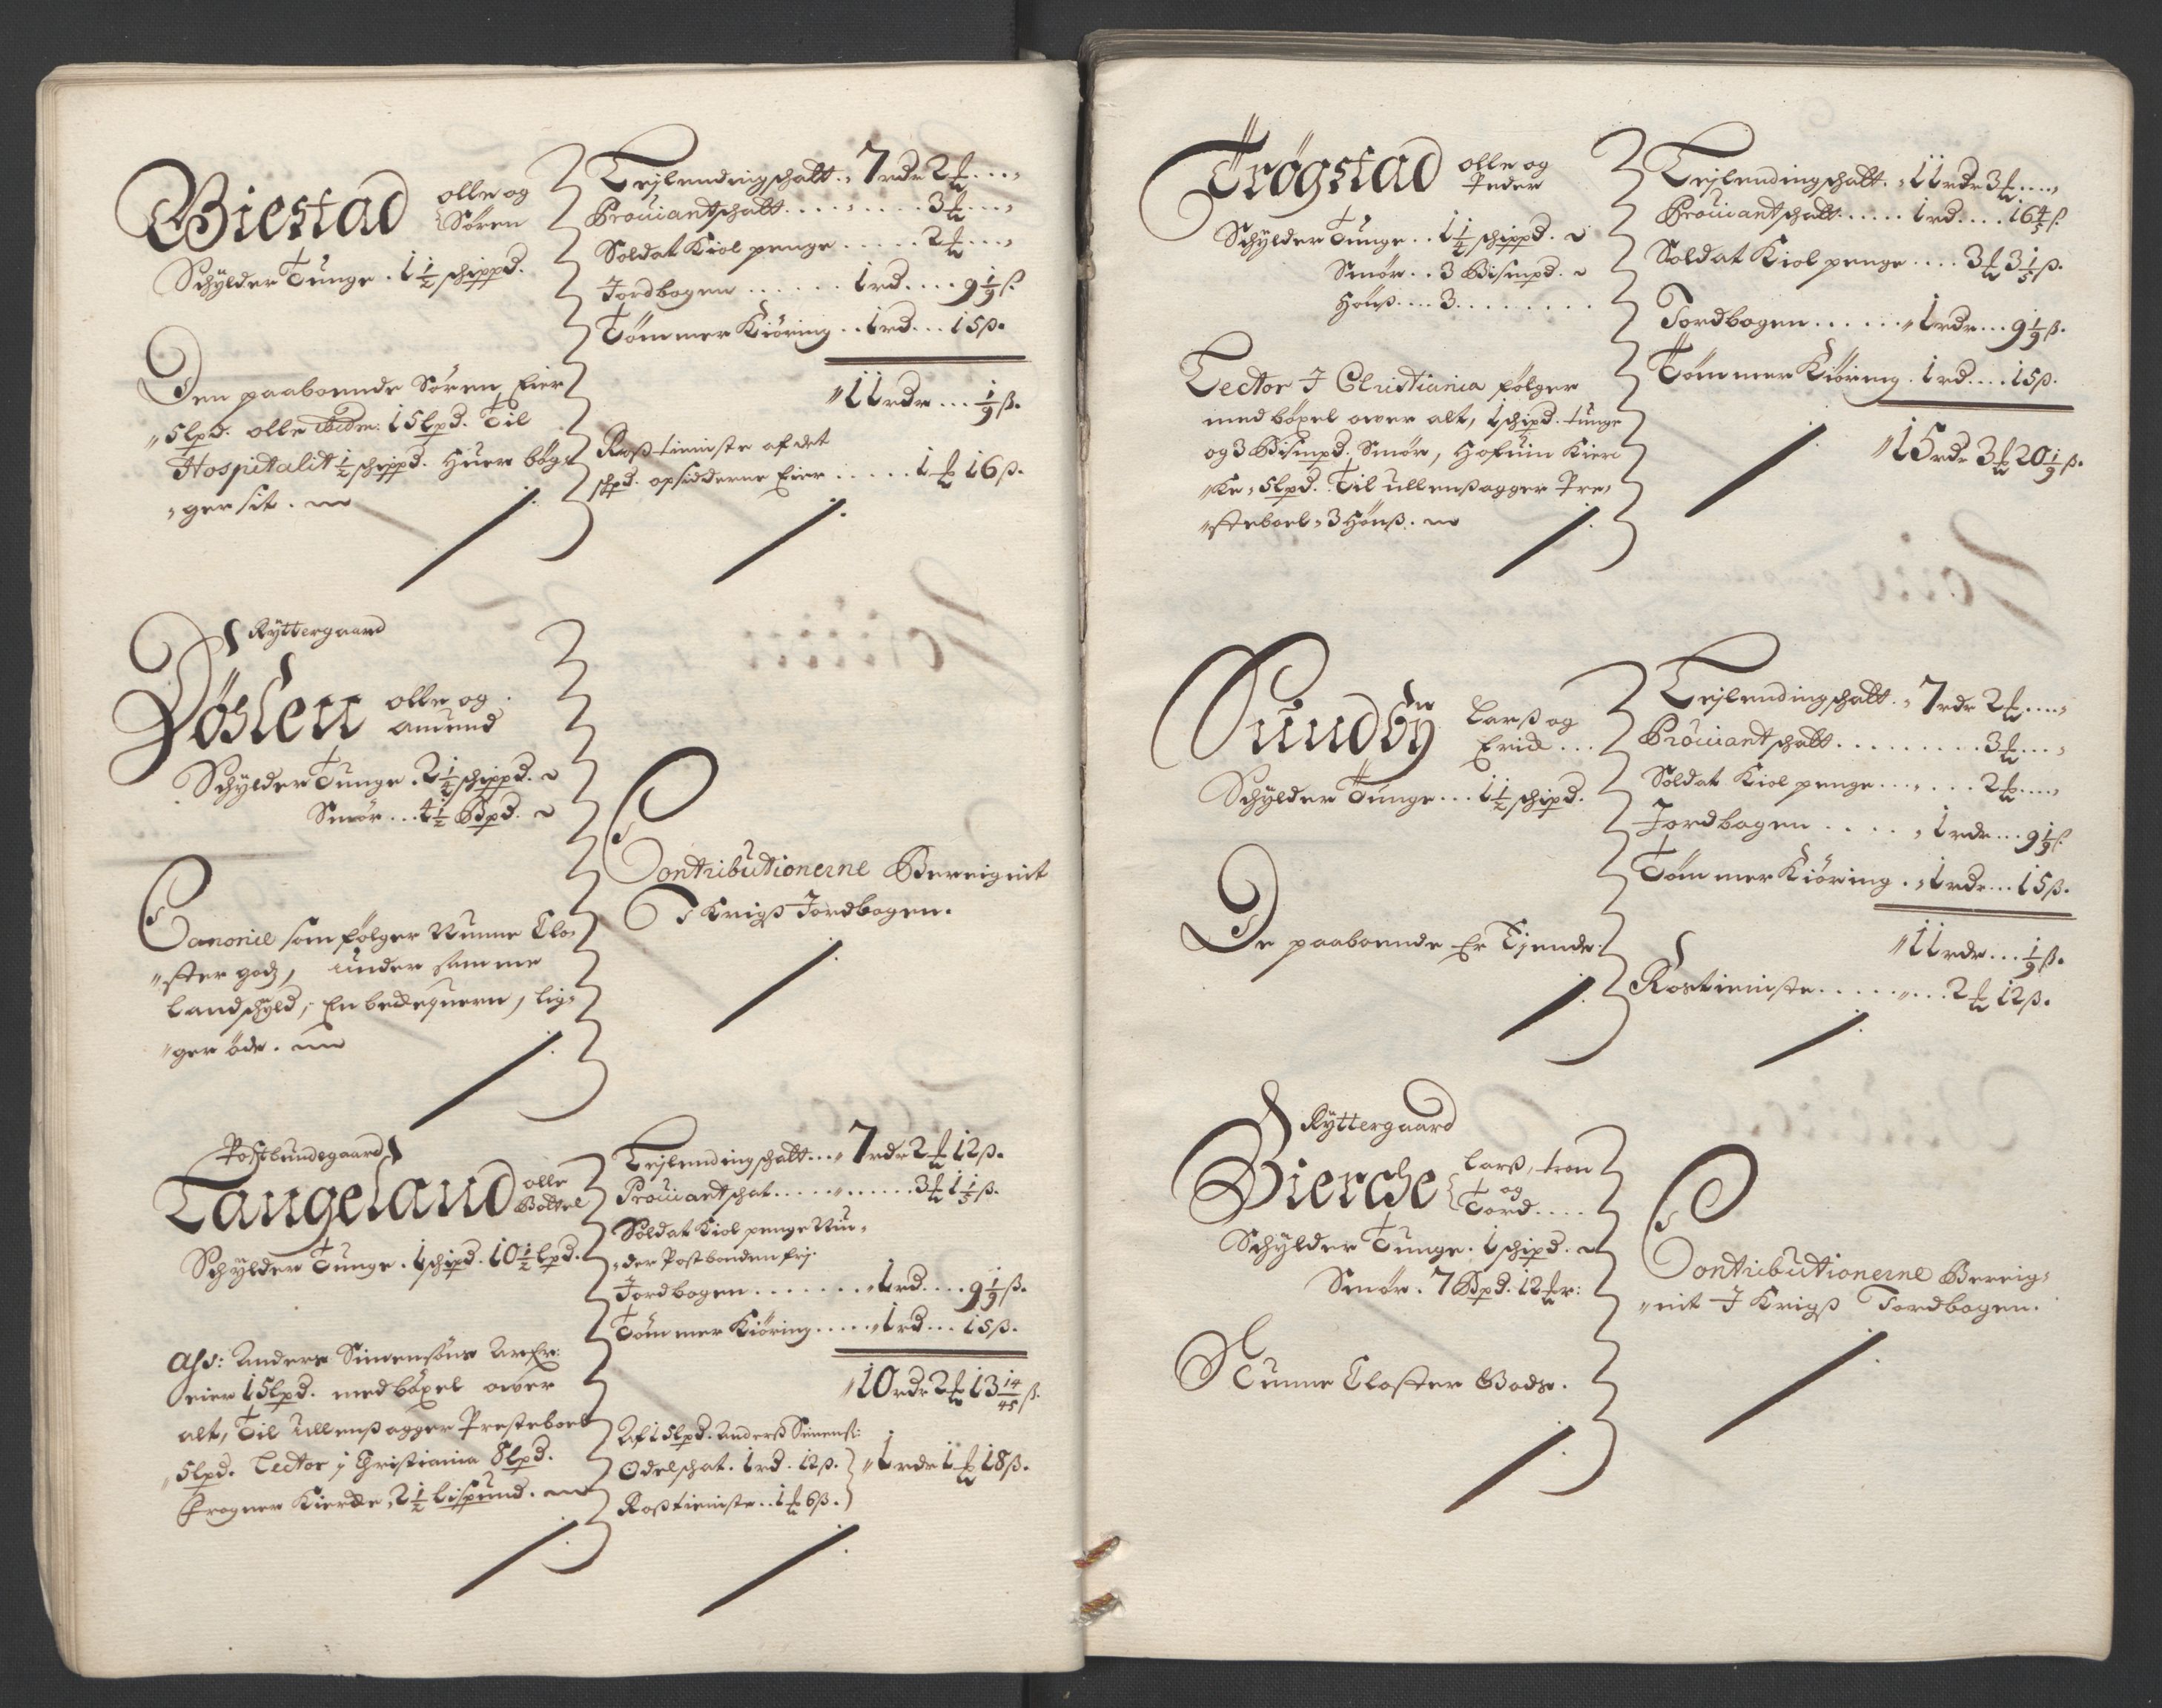 Biestad olle og
Sören
Schylder Tunge . 1 1/2 schippd.
Den paaboende Sören Eier
5 lpd. olle ibidm: 15 lpd. Til
Hospitalit 1/2 schippd. Huer böx-
ger sit.
Lejlendingschatt. 7 rdr 2 ƒ
Prouiantschatt . . . . . 3 ƒ
Soldat Kiol penge . . . . . 2 ƒ
Jordbogen . . . . . . 1 rd. . . . 9 1/9 ß.
Tömmer Kiöring . . 1 rd. . . 15 ß.
11 rdr . . . 1/9 ß.
Rosstieniste af det
schpd. opsidderne Eier . . . . . 1 ƒ 16 ß.
Ryttergaard
Döhlen olle og
Amund
Schylder Tunge . 2 1/4 schippd.
Smör . . . 4 1/2 Bpd.
Canonie som fölger Nunne Clo-
ster godz, under samme
Landschyld, En beckequern, lig-
ger öde.
Contributionerne Bereignit
I Krigs Jordbogen.
Postbundegaard
Langeland olle
Bottel
Schylder Tunge . 1 schipd. 10 1/2 lpd.
Ass: Anders Simensöns Arfr:
eier 15 lpd. med böxel over
alt, Til Ullensagger Presteboel
5 lpd. Lector j Christiania 8 lpd.
Frogner Kiercke, 2 1/2 Lispund.
Lejlendingschatt . . . 7 rdr 2 ƒ 12 ß.
Prouiantschat . . . . . . . . 3 ƒ 1 1/5 ß.
Soldat Kiol penge Nui-
der Postbonden frj.
Jordbogen . . . . . . . 1 rd. . . . 9 1/9 ß.
Tömmer Kiöring . . . . . 1 rd. . . 15 ß.
10 rdr 2 ƒ 13 14/45 ß.
Af 15 lpd. Anders Simens:
Odelschat . 1 rd . 12 ß. } 1 rdr 1 ƒ 18 ß.
Rosstieniste . . 1 ƒ 6 ß.
Trögstad olle og
Peder
Schylder Tunge . . 1 1/4 schippd.
Smör . . 3 Bismpd.
Höns . . . . 3 . . . . . . . .
Lector I Christiania fölger
med böxel over alt, 1 schipd. tunge
og 3 Bismpd. Smör, Hofuin Kier-
ke, 5 lpd. Til Ullensagger Pre-
steboel, 3 Höns.
Lejlendingschatt. 11 rdr 3 ƒ
Prouiantschatt . . . . . . 1 rd . . . . 16 4/5 ß.
Soldat Kiol penge . . . . 3 ƒ 3 1/5 ß.
Jordbogen . . . . . . 1 rdr . . . 9 1/9 ß.
Tömmer Kiöring . 1 rd . . . . 15 ß.
15 rdr 3 ƒ 20 1/9 ß.
Sundby Lars og
Erich . . .
Schylder Tunge . . . 1 1/2 schipd.
De paaboende Er Ejende.
Lejlendingschatt . 7 rdr 2 ƒ
Prouiant schatt . . . . . . . . . . 3 ƒ
Soldat Kiol penge . . . . . . 2 ƒ
Jordbogen . . . . 1 rdr . . . 9 1/9 ß.
Tömmer Kiöring . 1 rdr . . . 15 ß.
11 rdr . . . 1/9 ß.
Rostieniste . . . . . . . . 2 ƒ 12 ß.
Ryttergaard
Bierche Lars, tron
og
Tord . . . .
Schylder Tunge . 1 schipd.
Smör . 7 Bpd. 12
Nunne Closter Gods.
Contributionerne Bereig-
nit I Krigs Jordbogen.